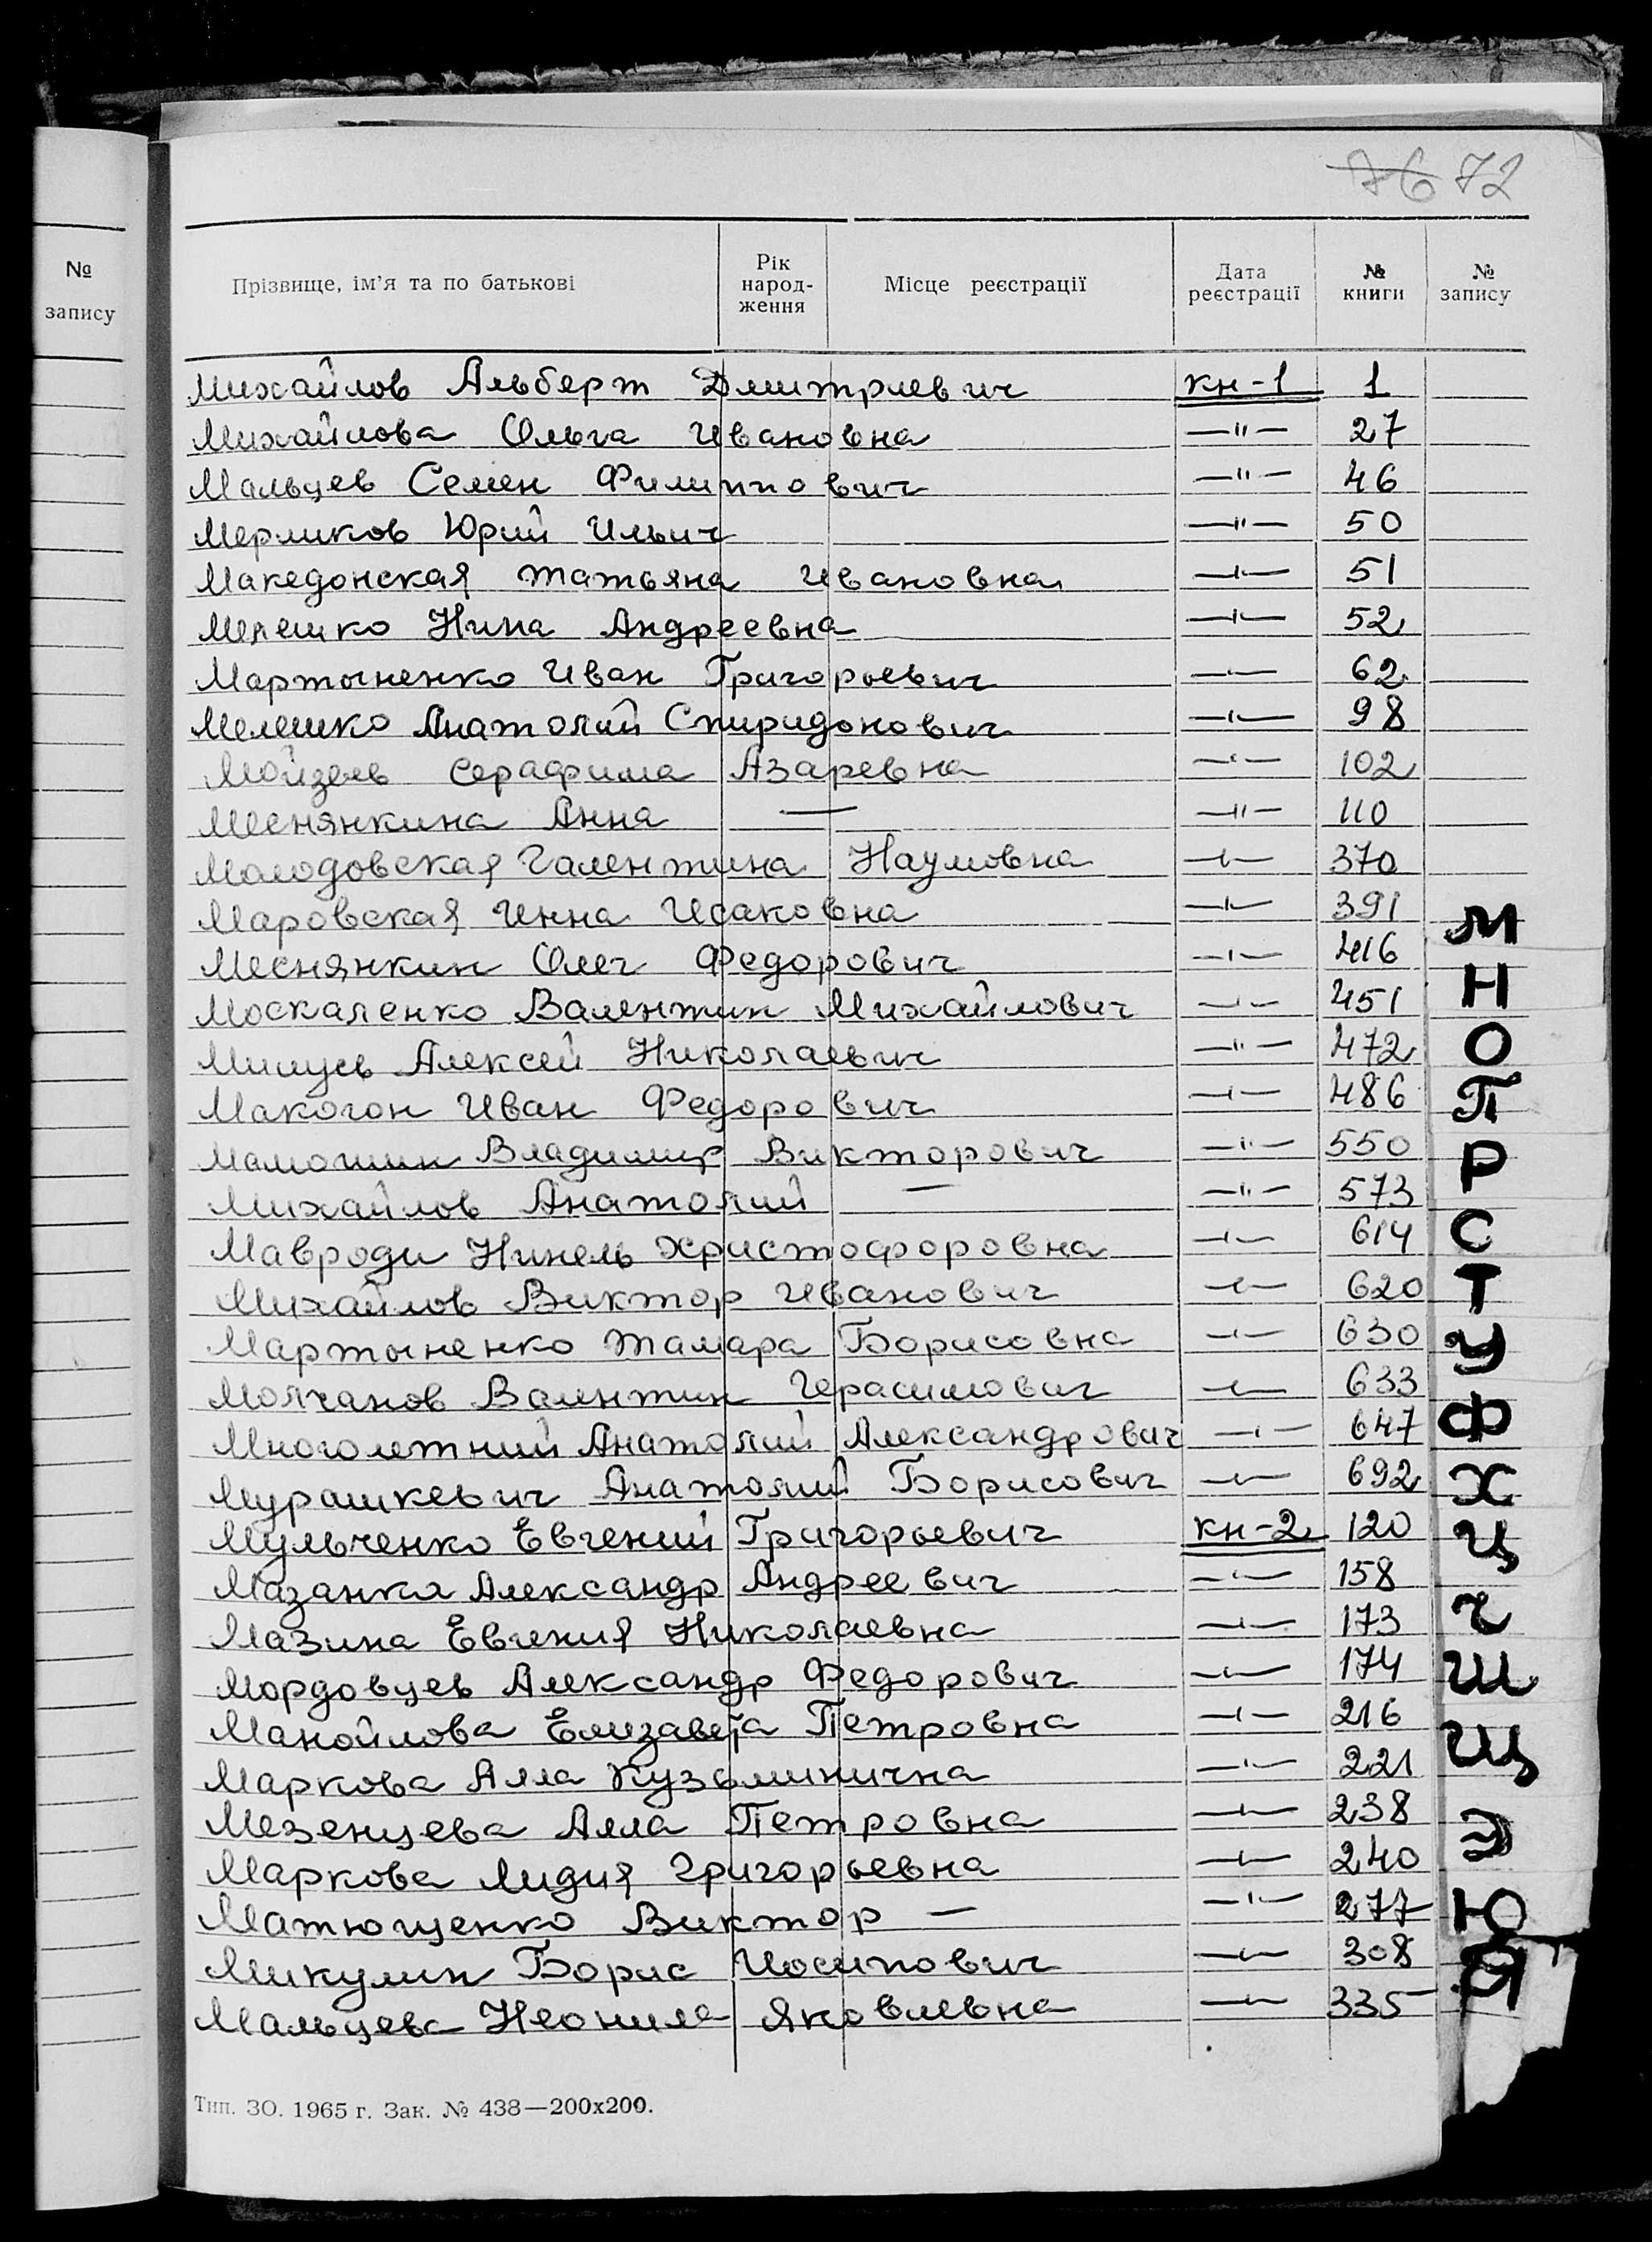 76 72
№ запису
Прізвище, ім'я та по батькові Рік народження Місце реєстрації Дата реєстрації № книги № запису
Михайлов Альберт Дмитриевич кн-1 1
Михайлова Ольга Ивановна —"— 27
Мальцев Семен Филиппович —"— 46
Мерликов Юрий Ильич —"— 50
Македонская Татьяна Ивановна —"— 51
Мелешко Нина Андреевна —"— 52
Мартыненко Иван Григорьевич —"— 62
Мелешко Анатолий Спиридонович —"— 98
Мойзевв Серафима Азаревна —"— 102
Меснянкина Анна — —"— 110
Молодовская Галентина Наумовна —"— 370
Маровская Инна Исаковна —"— 391
Меснянкин Олег Федорович —"— 416
Москаленко Валентин Михайлович —"— 451
Алексей Николаевич —"— 472
Макогон Иван Федорович —"— 486
Мамошин Владимир Викторович —"— 550
Михайлов Анатолий — —"— 573
Мавроди Нинель Христофоровна —"— 614
Михайлов Виктор Иванович —"— 620
Мартыненко Тамара Борисовна —"— 630
Молчанов Валентин Герасимович —"— 633
Многолетний Анатолий Александрович —"— 647
Мурашкевич Анатолий Борисович —"— 692
Мульченко Евгений Григорьевич кн-2 120
Мазанка Александр Андреевич —"— 158
Мазина Евгения Николаевна —"— 173
Мордовцев Александр Федорович —"— 174
Манойлова Елизавета Петровна —"— 216
Маркова Алла Кузьминична —"— 221
Мезенцева Алла Петровна —"— 238
Маркова Лидия Григорьевна —"— 240
Матющенко Виктор — —"— 277
Микулин Борис Иосипович —"— 308
Мальцева Неонила Яковлевна —"— 335
М
Н
О
П
Р
С
Т
У
Ф
Х
Ц
Ч
Ш
Щ
Э
Ю
Я
Тип. ЗО. 1965 г. Зак. № 438—200х200.